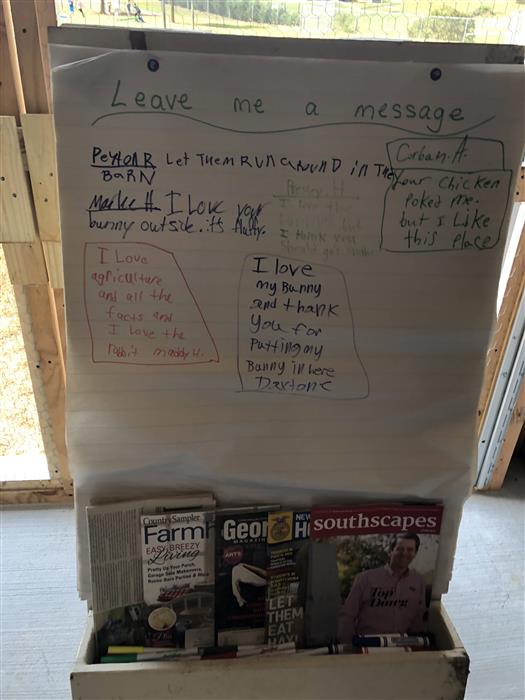 Leave me a message
PEYTON R LET THEM RUN AROUND IN THE
BARN
I LOVE your
bunny outside. it's fluffy.
Presley H
I love the
but
I think you
Should get another
Corban. H.
Your chicken
poked me.
but I Like
this place
I Love
agriculture
and all the
facts and
I love the
rabbit maddy H.
I love
my Bunny
and thank
you for
Putting my
Bunny in here
Country Sampler
Farm
EASY, BREEZY
Living
Pretty Up Your Porch,
Garage Sale Makeovers,
Geor
MAGAZIN
NEW
H
LET
THEM
EAT
HAY!
southscapes
Top
Dawg